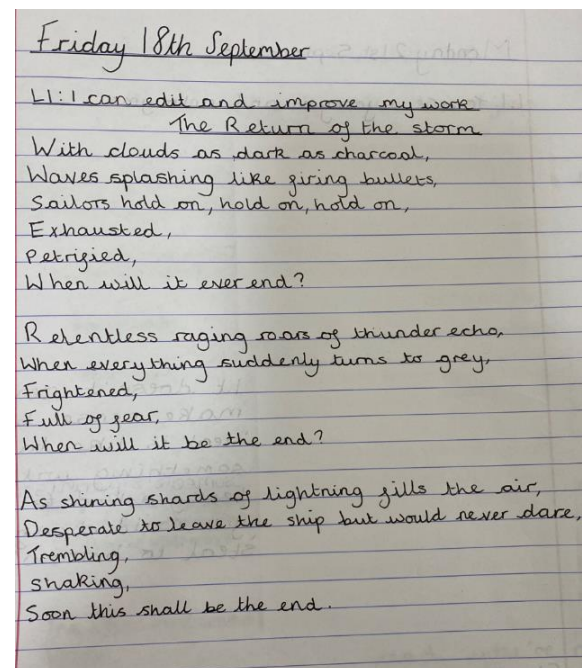 Friday 18th September
LI: I can edit and improve my work
The Return of the storm
With clouds as dark as charcoal,
Waves splashing like firing bullets,
Sailors hold on, hold on, hold on,
Exhausted,
Petrified,
When will it ever end?
Relentless raging roars of thunder echo,
When everything suddenly turns to grey,
Frightened,
Full of fear,
When will it be the end?
As shining shards of lightning fills the air,
Desperate to leave the ship but would never dare,
Trembling,
shaking,
Soon this shall be the end.